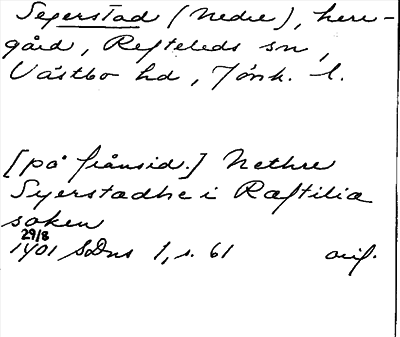 Segerstad (Nedre), herr-
gård, Refteleds sn,
Västbo hd, Jönk. l.
[på frånsid.] Nethre
Syerstadhe i Ræftilia
soken
29/8
1401 SDns 1, s. 61 orig.